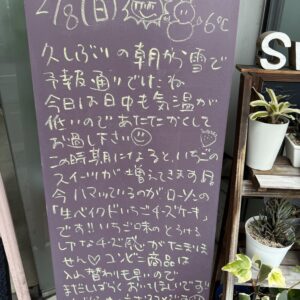 2/8(日) 6℃
久しぶりの朝から雪で
予報通りでしたね
今日は日中も気温が
低いのであたたかくして
お過し下さい
この時期になると、いちごの
スイーツが増えてきます
今ハマッているのがローソンの
「生ベイクドいちごチーズケーキ」
です!!いちご味のとろける
ような
チーズ感がたまりま
せん♡コンビニ商品は
入れ替わりも早いので
まだしばらくおいてほしいです
S